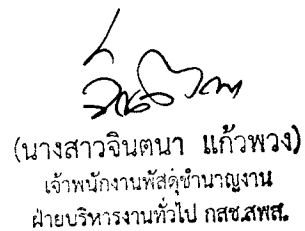 (นางสาวจินตนา แก้วพวง)
เจ้าพนักงานพัสดุชำนาญงาน
ฝ่ายบริหารงานทั่วไป กสช.สพส.